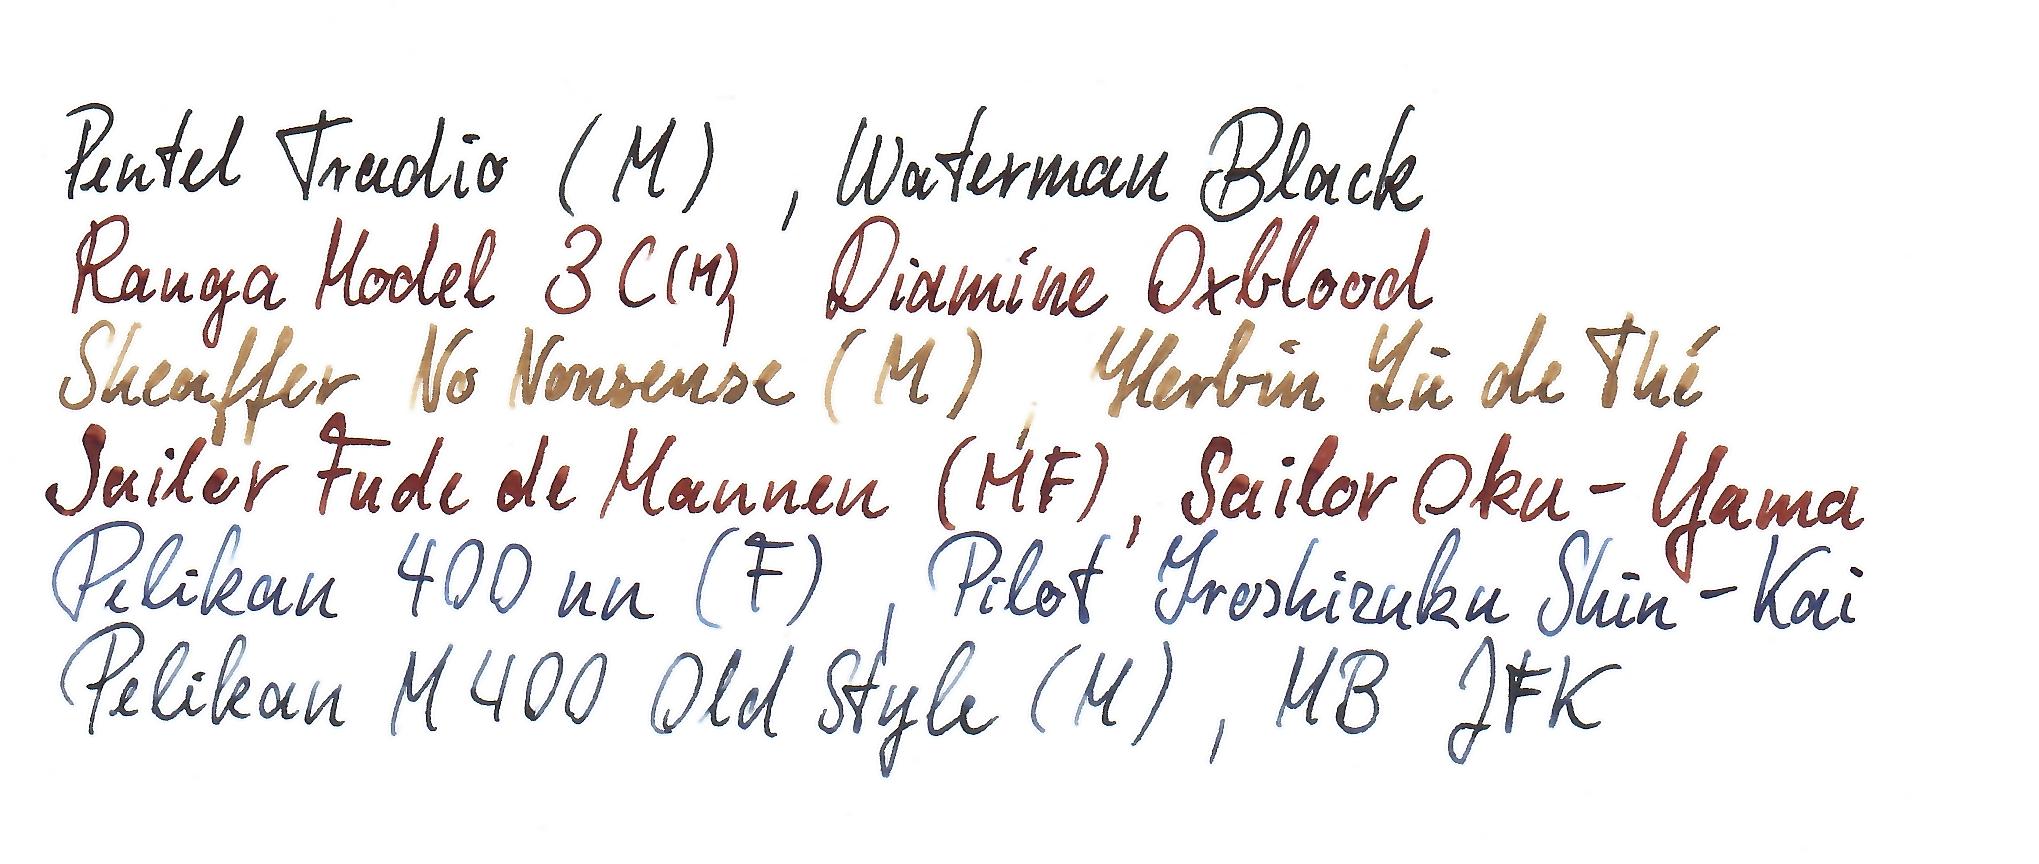 Pentel Tradio (M) , Waterman Black
Ranga Model 3C (M), Diamine Oxblood
Sheaffer No Nonsense (M) , Herbin Lie de Thé
Sailor Fude de Mannen (MF), Sailor Oku-Yama
Pelikan 400 nn (F) , Pilot Iroshizuku Shin-Kai
Pelikan M400 Old Style (M) , MB JFK